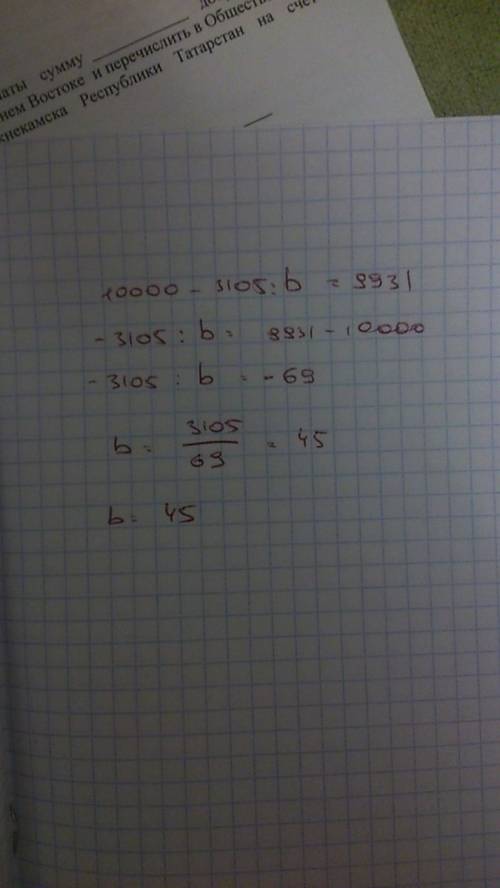 сумму
нем Востоке и перечислить в Обществ
Республики Татарстан на счет
10000 - 3105 : b = 9931
- 3105 : b = 9931 - 10000
- 3105 : b = - 69
b = 3105/69 = 45
b = 45